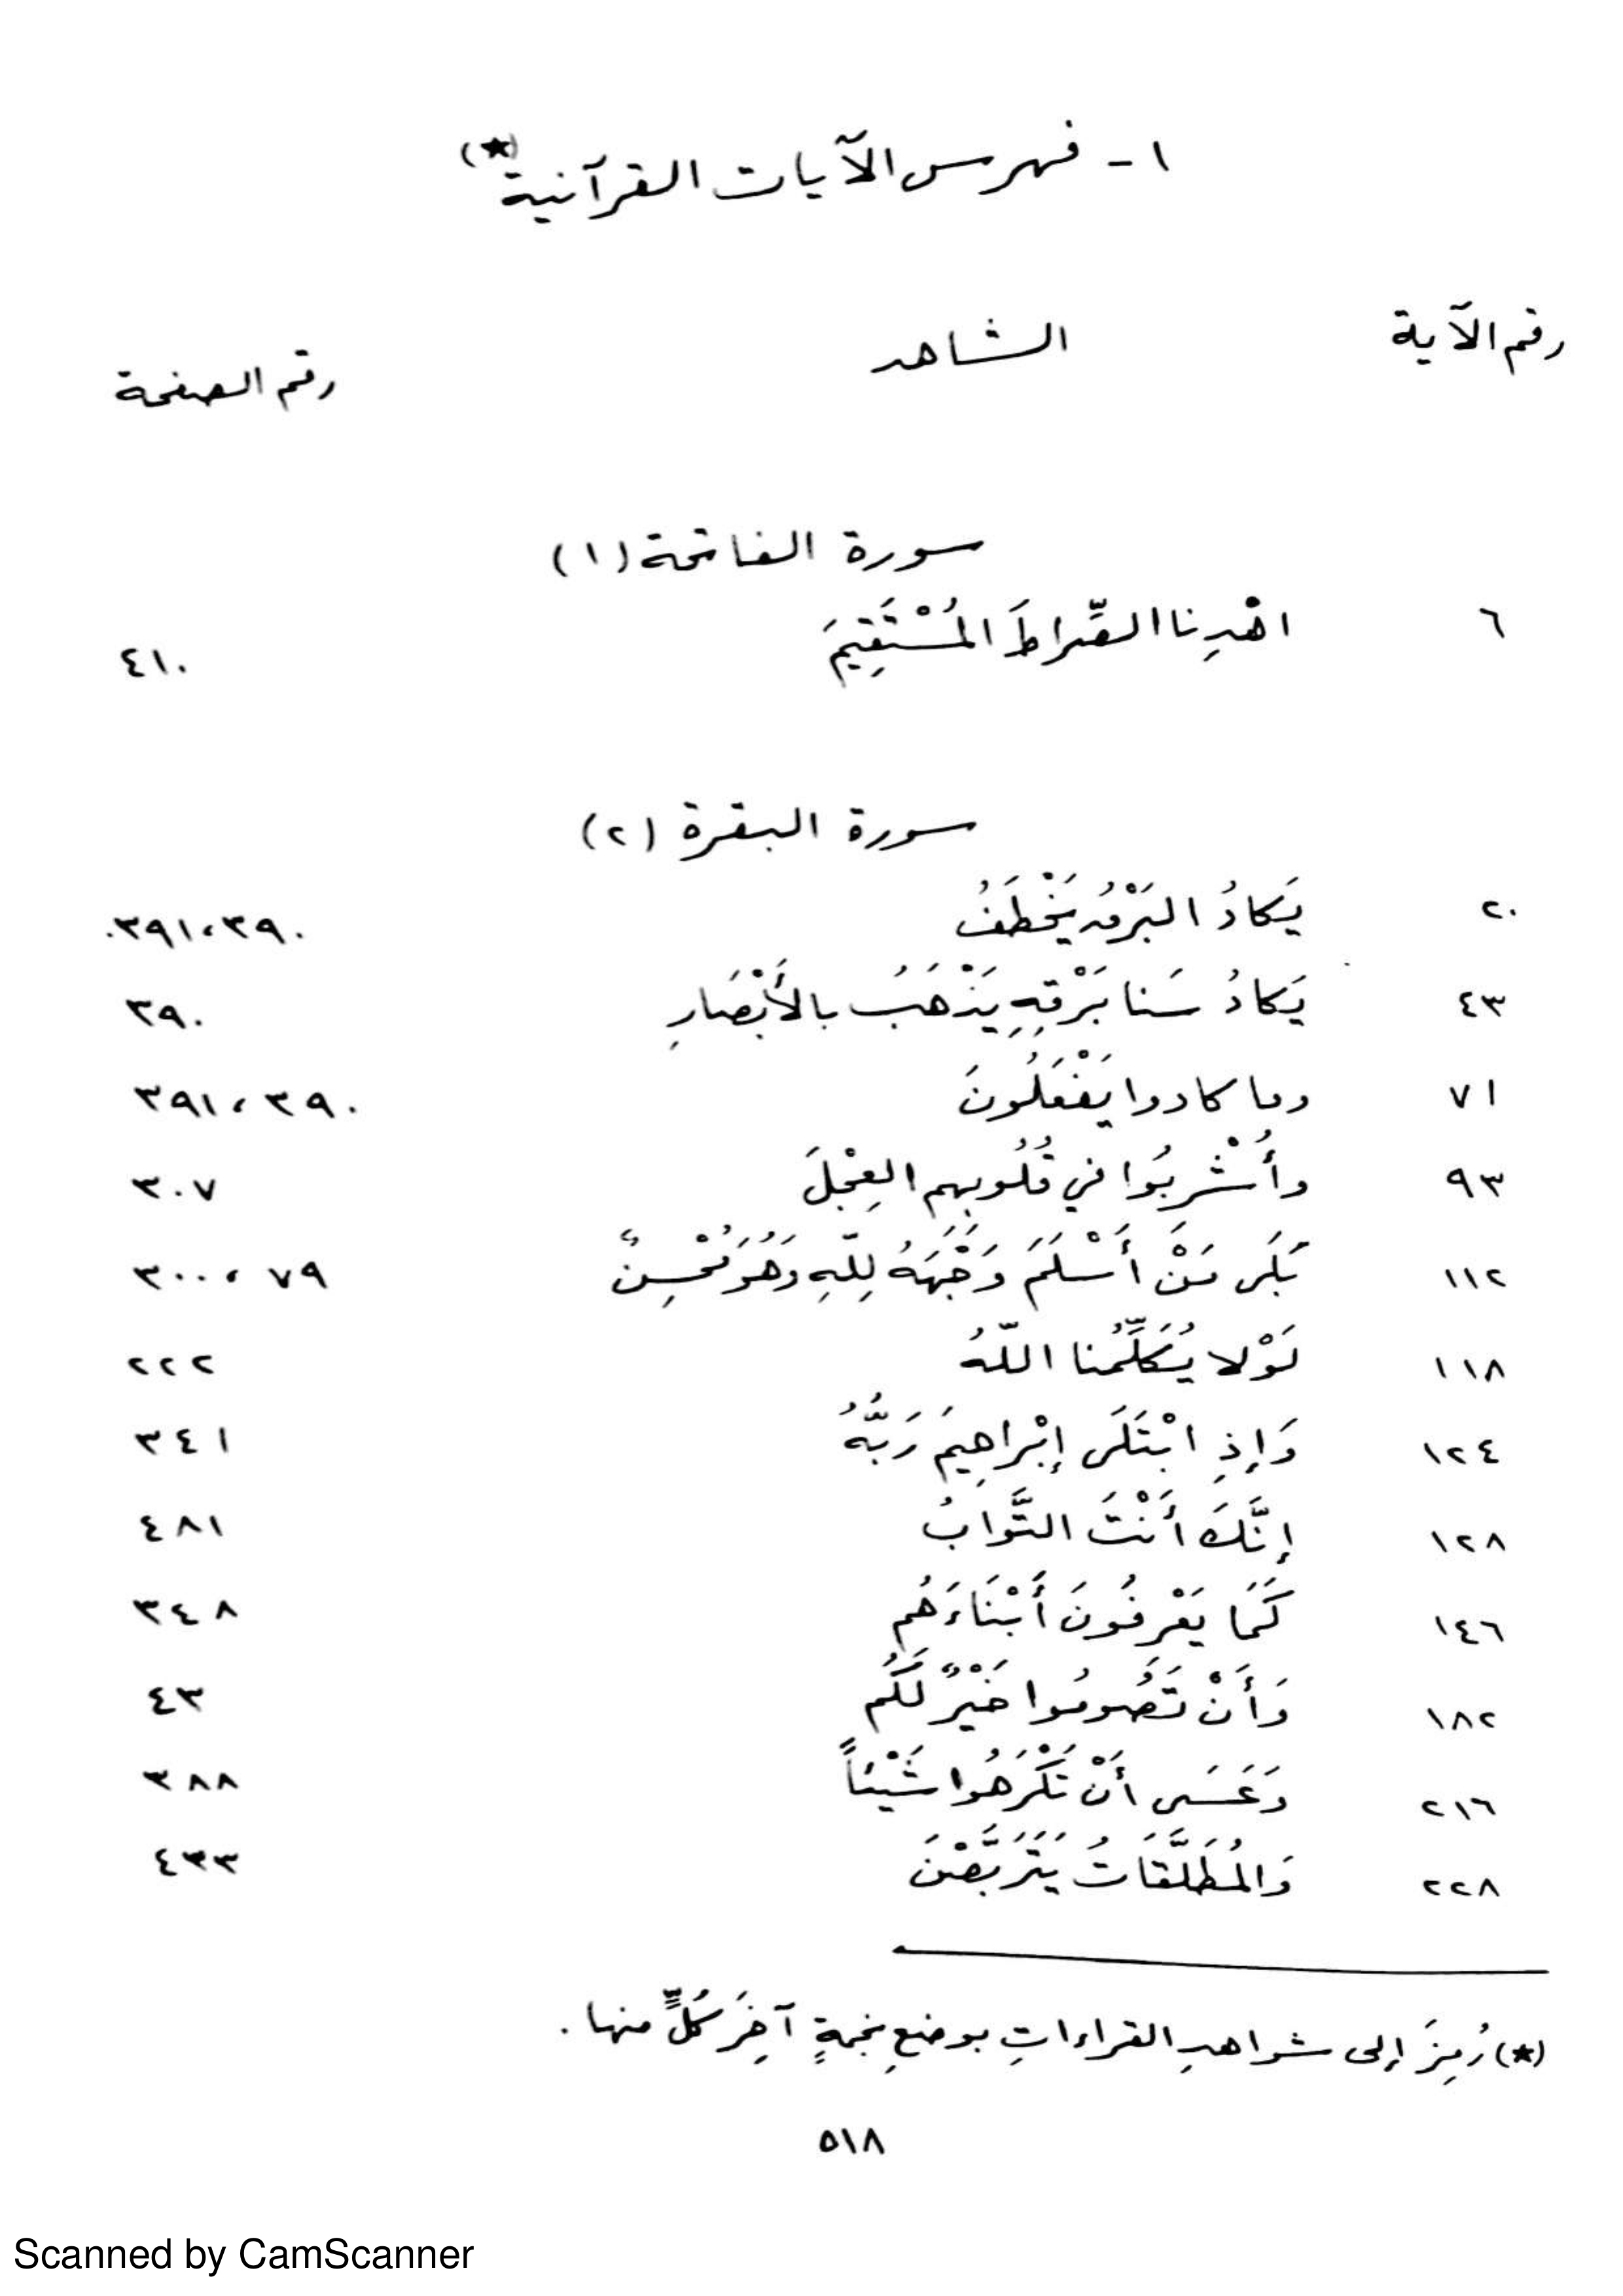 ١ - فهرس الآيات القرآنية (★)
رقم الآية الشاهد رقم الصفحة
سورة الفاتحة (١)
٦ اهْدِنا الصِّراطَ المُسْتَقِيمَ ٤١٠
سورة البقرة (٢)
٢٠ يَكادُ البَرْقُ يَخْطَفُ ٣٩٠، ٣٩١.
٤٣ يَكادُ سَنا بَرْقِهِ يَذْهَبُ بالأَبْصَارِ ٣٩٠
٧١ وما كادوا يَفْعَلُونَ ٣٩٠، ٣٩١
٩٣ وأُشْرِبُوا في قُلُوبِهم العِجْلَ ٣٠٧
١١٢ بَلَى مَنْ أَسْلَمَ وَجْهَهُ لِلّهِ وَهُوَ مُحْسِنٌ ٧٩، ٣٠٠
١١٨ لَوْلا يُكَلِّمُنا اللّهُ ٢٢٢
١٢٤ وَإِذِ ابْتَلَى إِبْراهِيمَ رَبُّهُ ٣٤١
١٢٨ إِنَّكَ أَنْتَ التَّوابُ ٤٨١
١٤٦ كَمَا يَعْرِفُونَ أَبْنَاءَهُم ٣٤٨
١٨٢ وَأَنْ تَصُومُوا خَيْرٌ لَكُم ٤٣
٢١٦ وَعَسَى أَنْ تَكْرَهُوا شَيْئاً ٣٨٨
٢٢٨ وَالمُطَلَّقَاتُ يَتَرَبَّصْنَ ٤٣٣
(★) رُمِزَ إلى شواهدِ القراءاتِ بوضعِ نجمةٍ آخِرَ كُلٍّ منها.
٥١٨
Scanned by CamScanner